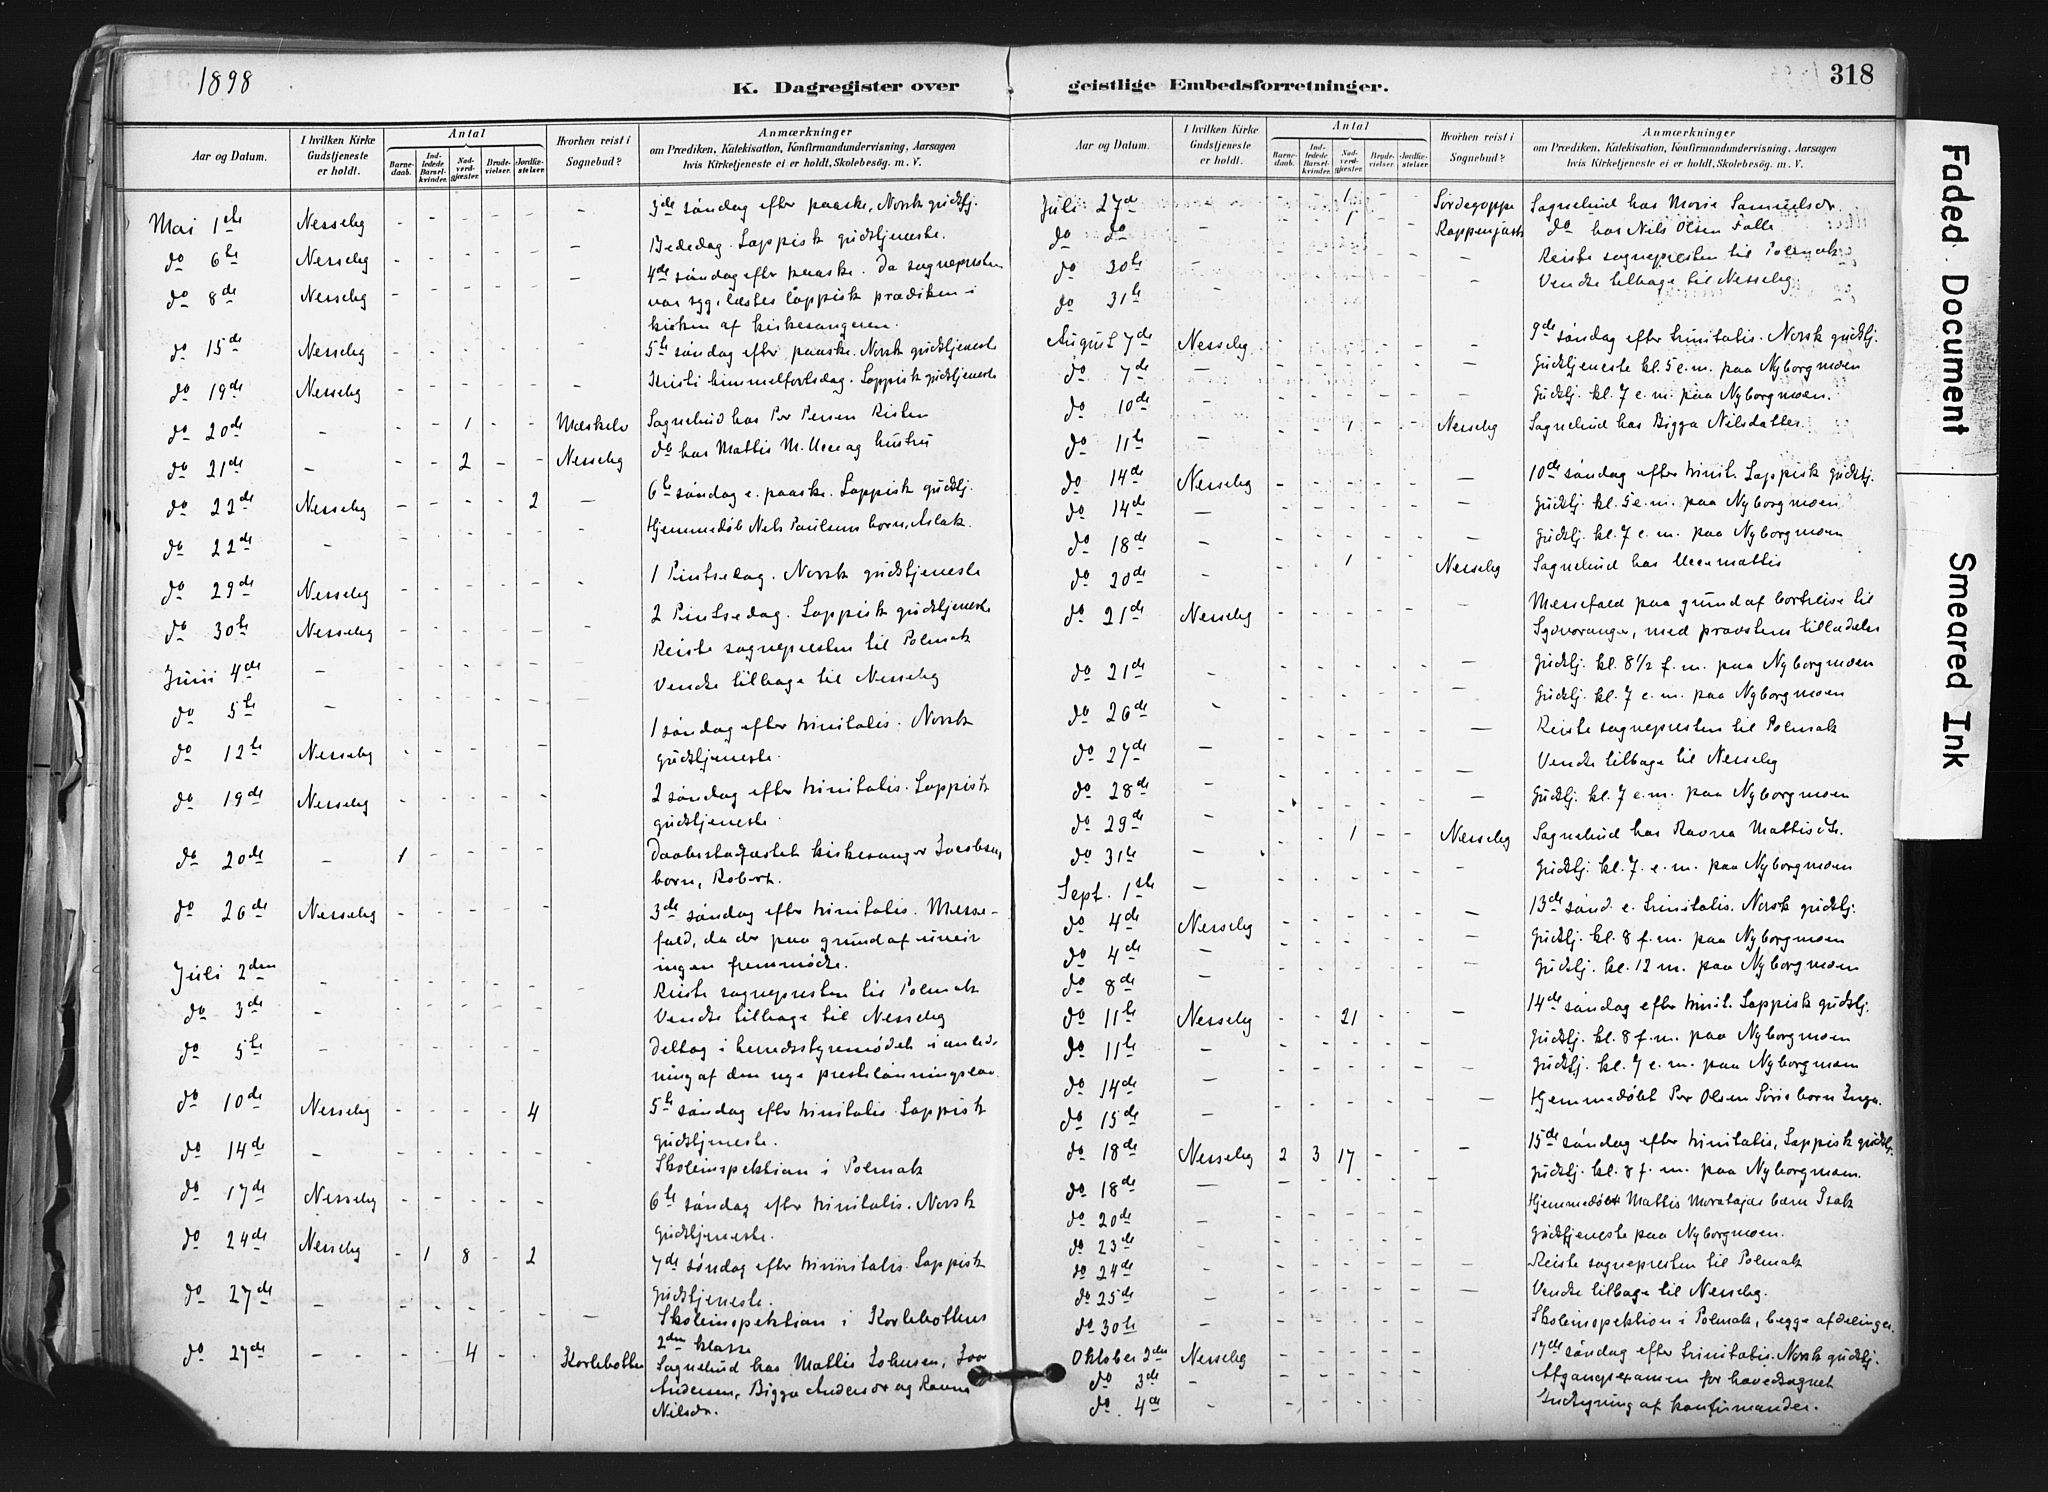 1898
K. Dagregister over
geistlige Embedsforretninger.
318
Aar og Datum.
I hvilken Kirke Gudstjeneste er holdt.
Antal
Barne-daab.
Ind-ledede Barsel-kvinder.
Nad-verd-gjæster.
Brude-vielser.
Jordfæ-stelser.
Hvorhen reist i Sognebud?
Anmærkninger
om Prædiken, Katekisation, Konfirmandundervisning, Aarsagen
hvis Kirketjeneste ei er holdt, Skolebesøg. m. V.
Mai 1ste Nesseby - - - - - - 3de søndag efter paaske. Norsk gudstj.
do 6te Nesseby - - - - - - Bededag. Lappisk gudstjeneste.
do 8de Nesseby - - - - - - 4de søndag efter paaske. Da sognepresten
var syg, læstes lappisk prædiken i
kirken af kirkesangeren.
do 15de Nesseby - - - - - - 5te søndag efter paaske. Norsk gudstjeneste
do 19de Nesseby - - - - - - Kristi himmelfartsdag. Lappisk gudstjeneste
do 20de - - - 1 - - Mæskelv Sognebud hos Per Persen Risten
do 21de - - - 2 - - Nesseby do hos Mattis M. Ucce og hustru
do 22de Nesseby - - - - 2 - 6te søndag e. paaske. Lappisk gudstj.
do 22de - - - - - - - Hjemmedøb Nils Paulsens barn, Aslak.
do 29de Nesseby - - - - - - 1 Pintsedag. Norsk gudstjeneste
do 30te Nesseby - - - - - - 2 Pintsedag. Lappisk gudstjeneste
Juni 4de - - - - - - - Reiste sognepresten til Polmak
do 5te - - - - - - - Vendte tilbage til Nesseby
do 12te Nesseby - - - - - 1 søndag efter trinitatis. Norsk
gudstjeneste.
do 19de Nesseby - - - - - 2 søndag efter trinitatis. Lappisk
gudstjeneste.
do 20de - 1 - - - - Daabsstadfæstet kirkesanger Jacobsens
barn, Robert.
do 26de Nesseby - - - - - 3de søndag efter trinitatis. Messe-
fald, da der paa grund af uveir
ingen fremmødte.
Juli 2den - - - - - - - Reiste sognepresten til Polmak
do 3de - - - - - - Vendte tilbage til Nesseby
do 5te - - - - - - Deltog i herredsstyremødet i anled-
ning af den nye prestelønningslov.
do 10de Nesseby - - - - 4 5te søndag efter trinitatis. Lappisk
gudstjeneste.
do 14de - - - - - - - Skoleinspektion i Polmak
do 17de Nesseby - - - - - 6te søndag efter trinitatis. Norsk
gudstjeneste.
do 24de Nesseby - 1 8 - 2 7de søndag efter trinitatis. Lappisk
gudstjeneste.
do 27de - - - - - - - Skoleinspektion i Karlebottens
2den klasse
do 27de - - - 4 - - Karlebotten Sognebud hos Mattis Johnsen, Joar
Andersen, Bigga Andersdr og Ravna
Nilsdr.
Aar og Datum.
I hvilken Kirke Gudstjeneste er holdt.
Antal
Barne-daab.
Ind-ledede Barsel-kvinder.
Nad-verd-gjæster.
Brude-vielser.
Jordfæ-stelser.
Hvorhen reist i Sognebud?
Anmærkninger
om Prædiken, Katekisation, Konfirmandundervisning, Aarsagen
hvis Kirketjeneste ei er holdt, Skolebesøg. m. V.
Juli 27de - - - 1 - - Sirdegoppe Sognebud hos Marie Samuelsdr
do do - - - 1 - - do hos Nils Olsen
do 30te - - - - - - - Reiste sognepresten til Polmak
do 31te - - - - - - - Vendte tilbage til Nesseby
August 7de Nesseby - - - - - - 9de søndag efter trinitatis. Norsk gudstj.
do 7de - - - - - - - Gudstjeneste kl. 5 e.m. paa Nyborgmoen
do 10de - - - - - - - Gudstj. kl. 7 e.m. paa Nyborgmoen.
do 11te - - - 1 - - Nesseby Sognebud hos Bigga Nilsdatter.
do 14de Nesseby - - - - - - 10de søndag efter trinit. Lappisk gudstj.
do 14de - - - - - - - Gudstj. kl. 5 e.m. paa Nyborgmoen
do 18de - - - - - - - Gudstj. kl. 7 e.m. paa Nyborgmoen
do 20de - - - 1 - - Nesseby Sognebud hos Uccemattis
do 21de Nesseby - - - - - - Messefald paa grund af bortreise til
Sydvaranger, med provstens tilladelse
do 21de - - - - - - - Gudstj. kl. 8 1/2 f.m. paa Nyborgmoen
do 26de - - - - - - - Gudstj. kl. 7 e.m. paa Nyborgmoen
do 27de - - - - - - - Reiste sognepresten til Polmak
do 28de - - - - - - - Vendte tilbage til Nesseby
do 29de - - - - - - - Gudstj. kl. 7 e.m. paa Nyborgmoen
do 31te - - - 1 - - Nesseby Sognebud hos Ravna Mattisdtr.
Sept. 1ste - - - - - - Gudstj. kl. 7 e.m. paa Nyborgmoen
do 4de Nesseby - - - - - - 13de sønd. e. trinitatis. Norsk gudstj.
do 4de - - - - - - - Gudstj. kl. 8 f.m. paa Nyborgmoen
do 8de - - - - - - Gudstj. kl. 12 m. paa Nyborgmoen
do 11te Nesseby - - 21 - - - 14de søndag efter trinit. Lappisk gudstj.
do 11te - - - - - - Gudstj. kl. 8 f.m. paa Nyborgmoen
do 14de - - - - - - Gudstj. kl. 7 e.m. paa Nyborgmoen
do 15de - - - - - - - Hjemmedøbt Per Olsen barn Inga.
do 18de Nesseby 2 3 17 - - - 15de søndag efter trinitatis, Lappisk gudstj.
do 18de - - - - - - Gudstj. kl. 8 f.m. paa Nyborgmoen.
do 20de - - - - - - Hjemmedøbt Mattis barn Isak
do 23de - - - - - - Gudstjeneste paa Nyborgmoen.
do 24de - - - - - - Reiste sognepresten til Polmak
do 25de - - - - - - Vendte tilbage til Nesseby.
do 30te - - - - - - Skoleinspektion i Polmak, begge afdelinger.
Oktober 2den Nesseby - - - - - 17de søndag efter trinitatis. Norsk gudstj.
do 3de - - - - - - Afgangsexamen for hovedsognet
do 4de - - - - - - Indtegning af konfirmander.
Faded Document
Smeared Ink